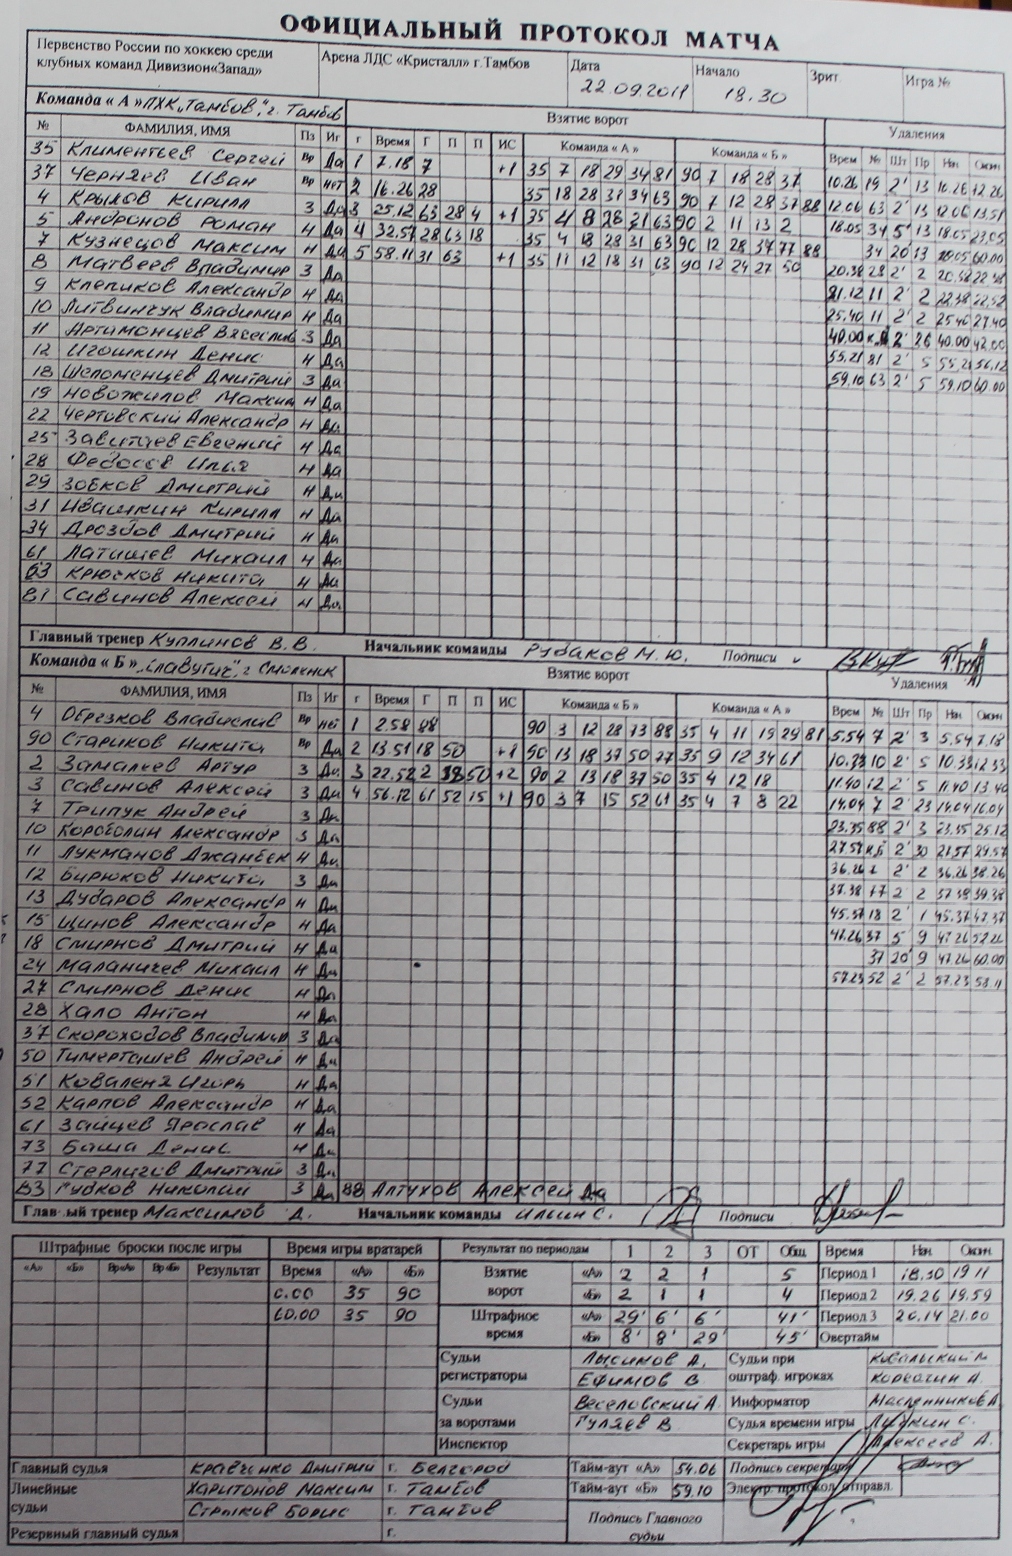 ОФИЦИАЛЬНЫЙ ПРОТОКОЛ МАТЧА
Первенство России по хоккею среди клубных команд Дивизион«Запад»
Арена ЛДС «Кристалл» г.Тамбов
Дата 22.09.2011
Начало 18.30
Зрит.
Игра №
Команда « А » ПХК„Тамбов“, г. Тамбов
Взятие ворот
Удаления
№ ФАМИЛИЯ, ИМЯ Пз Иг г Время Г П П ИС Команда « А » Команда « Б » Врем № Шт Пр Нач Окон
35 Климентьев Сергей Вр Да 1 7.18 7 +1 35 7 18 29 34 81 90 7 18 28 37 10.26 19 2' 13 10.26 12.26
37 Черняев Иван Вр нет 2 16.26 28 35 18 28 31 34 63 90 7 12 28 37 88 12.06 63 2' 13 12.06 13.51
4 Крылов Кирилл З Да 3 25.12 63 28 4 +1 35 4 8 28 21 63 90 2 11 13 2 18.05 34 5' 13 18.05 23.05
5 Андронов Роман Н Да 4 32.57 28 63 18 35 4 18 28 31 63 90 12 28 37 77 88 34 20 13 18.05 60.00
7 Кузнецов Максим Н Да 5 58.11 31 63 +1 35 11 12 18 31 63 90 12 24 27 50 20.38 28 2' 2 20.38 22.38
8 Матвеев Владимир З Да 21.12 11 2' 2 22.38 22.52
9 Клепиков Александр Н Да 25.40 11 2' 2 25.40 27.40
10 Литвинчук Владимир Н Да 40.00 2' 26 40.00 42.00
11 Артимонцев Вячеслав З Да 55.21 81 2' 5 55.21 56.12
12 Игошкин Денис Н Да 59.10 63 2' 5 59.10 60.00
18 Шеломенцев Дмитрий З Да
19 Новожилов Максим Н Да
22 Чертовский Александр Н Да
25 Завитаев Евгений Н Да
28 Федосов Илья Н Да
29 Зобков Дмитрий Н Да
31 Ивашкин Кирилл Н Да
34 Дроздов Дмитрий Н Да
61 Латишев Михаил Н Да
63 Крюков Никита Н Да
81 Савинов Алексей Н Да
Главный тренер Куплинов В.В. Начальник команды Рубаков М.Ю. Подписи
Команда « Б » „Славутич“, г Смоленск
Взятие ворот
Удаления
№ ФАМИЛИЯ, ИМЯ Пз Иг г Время Г П П ИС Команда « Б » Команда « А » Врем № Шт Пр Нач Окон
4 Обрезков Владислав Вр нет 1 2.58 88 90 3 12 28 73 88 35 4 11 19 29 81 5.54 7 2' 3 5.54 7.18
90 Стариков Никита Вр Да 2 13.51 18 50 +1 90 13 18 37 50 77 35 9 12 34 61 10.33 10 2' 5 10.33 12.33
2 Замалеев Артур З Да 3 22.52 2 18 50 +2 90 2 13 18 37 50 35 4 12 18 11.40 12 2' 5 11.40 13.40
3 Савинов Алексей З Да 4 56.12 61 52 15 +1 90 3 7 15 52 61 35 4 7 8 22 14.04 7 2' 23 14.04 16.04
7 Трипук Андрей З Да 23.35 88 2' 3 23.35 25.12
10 Александр З Да 2' 30 29.57
11 Лукманов Джанбек Н Да 36.26 2 2' 2 36.26 38.26
12 Бирюков Никита З Да 37.38 77 2 2 37.38 39.38
13 Дубаров Александр Н Да 45.37 18 2' 1 45.37 47.37
15 Щинов Александр Н Да 47.26 37 5 9 47.26 52.26
18 Смирнов Дмитрий Н Да 37 20' 9 47.26 60.00
24 Маланичев Михаил Н Да 57.23 52 2' 2 57.23 58.11
27 Смирнов Денис Н Да
28 Хало Антон Н Да
37 Скороходов Владимир З Да
50 Тимерташев Андрей Н Да
51 Коваленя Игорь Н Да
52 Карпов Александр Н Да
61 Зайцев Ярослав Н Да
73 Баша Денис Н Да
77 Стерлигов Дмитрий З Да
83 Губков Николай З Да 88 Алтухов Алексей Да
Главный тренер Максимов Д. Начальник команды Ильин С. Подписи
Штрафные броски после игры
«А» «Б» Вр«А» Вр«Б» Результат
Время игры вратарей
Время «А» «Б»
0.00 35 90
60.00 35 90
Результат по периодам 1 2 3 ОТ Общ
Взятие ворот «А» 2 2 1 5
«Б» 2 1 1 4
Штрафное время «А» 29' 6' 6' 41'
«Б» 8' 8' 29' 45'
Время Нач. Окон.
Период 1 18.30 19 11
Период 2 19.26 19.59
Период 3 20.14 21.00
Овертайм
Судьи регистраторы Лысиков А.
Ефимов В
Судьи за воротами Веселовский А
Гуляев В.
Инспектор
Судьи при оштраф. игроках Ковальский М
Корягин А.
Информатор Масленников А
Судья времени игры Лушкин С.
Секретарь игры Алексеев А.
Главный судья Кравченко Дмитрий г. Белгород
Линейные судьи Харитонов Максим г. Тамбов
Стрыков Борис г. Тамбов
Резервный главный судья г.
Тайм-аут «А» 54.06
Тайм-аут «Б» 59.10
Подпись секретаря
Электр. протокол отправл.
Подпись Главного судьи